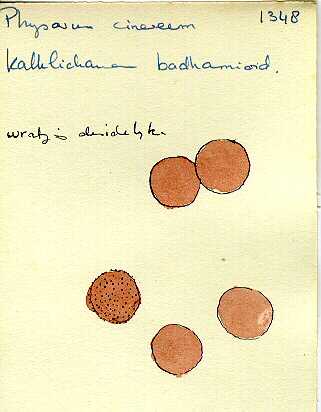 Physarum cinereum 1348
Kalklichamen badhamioid.
wratjes duidelijk.